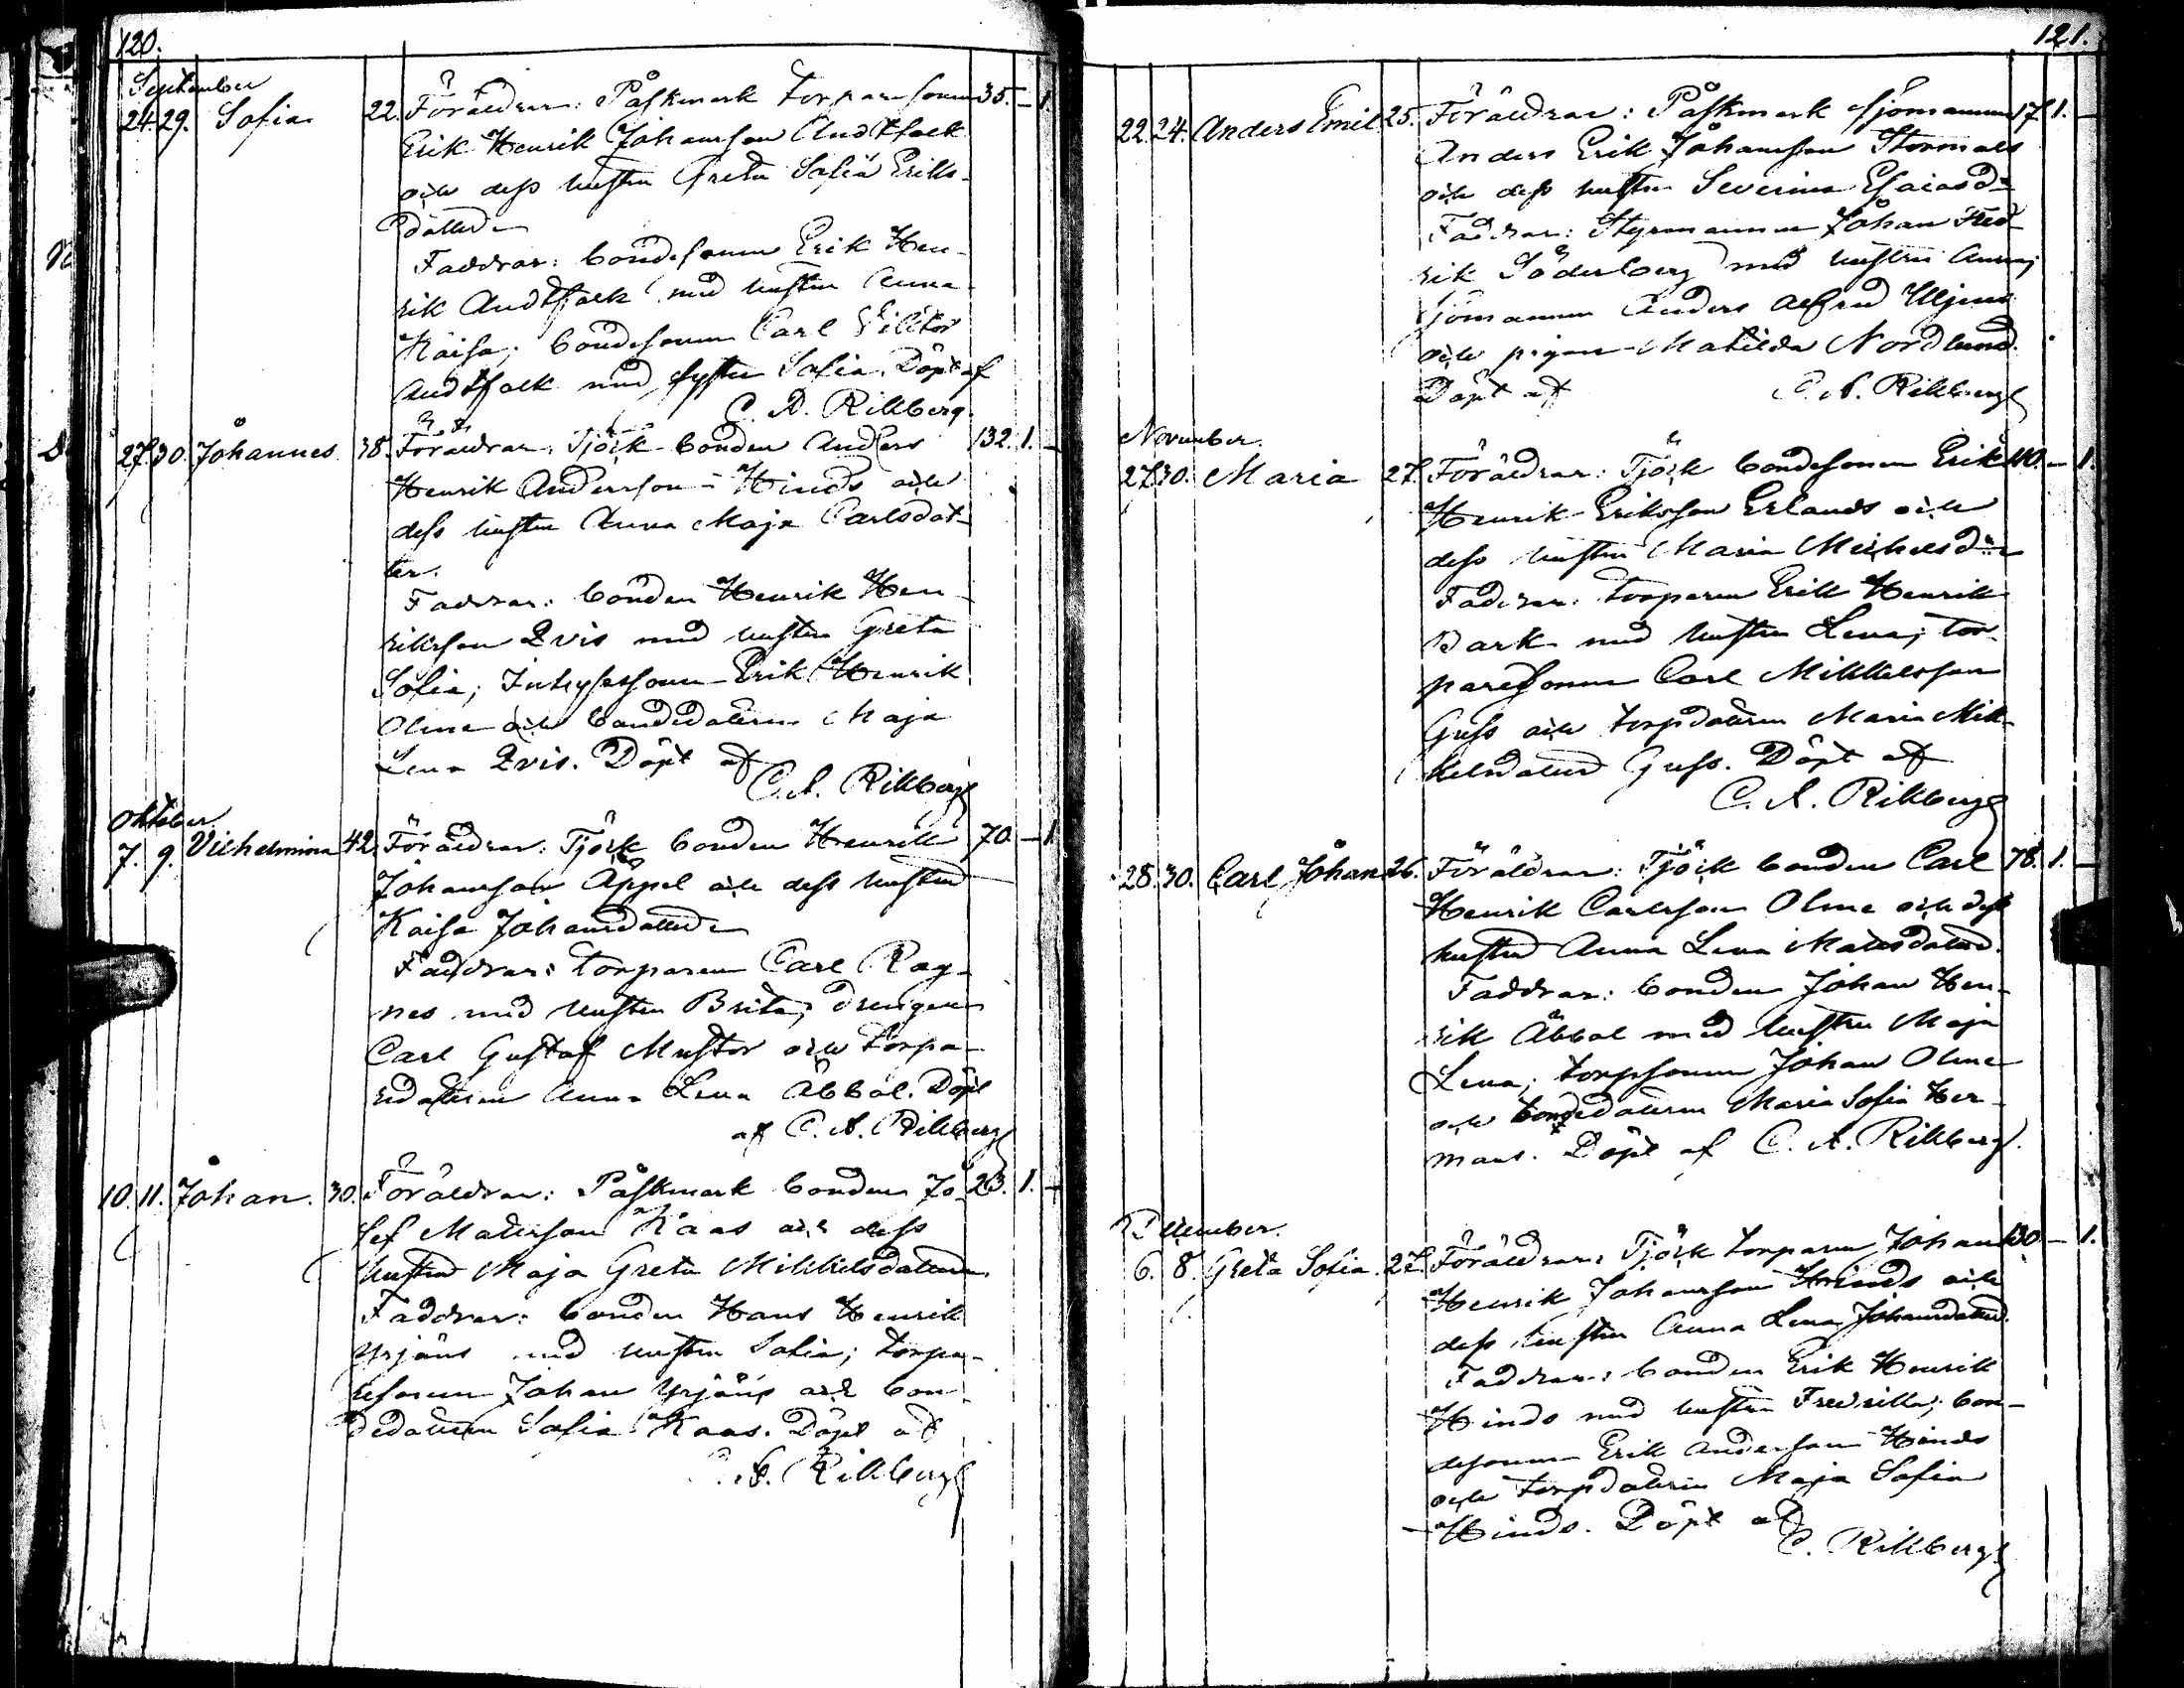 120.
September
24. 29. Sofia 22. Föräldrar: Påskmark torparesonen 35. - 1.
Erik Henrik Johansson Andtfolk
och dess hustru Greta Sofia Eriks-
dotter
Faddrar: bondesonen Erik Hen-
rik Andtfolk med hustru Anna
Kaisa; bondesonen Carl Viktor
Andtfolk med syster Sofia. Döpt af
C. A. Rikberg.
27. 30. Johannes 38. Föräldrar: Tjöck bonden Anders 132. 1. -
Henrik Andersson Hinds och
dess hustru Anna Maja Carlsdot-
ter.
Faddrar: bonden Henrik Hen-
riksson Qvis med hustru Greta
Sofia; Erik Henrik
Olme och bondedottren Maja
Lena Qvis. Döpt af
C. A. Rikberg
Oktober
7. 9. Vilhelmina 42. Föräldrar: Tjöck bonden Henrik 70. - 1.
Johansson Äppel och dess hustru
Kaisa Johansdotter
Faddrar: torparen Carl Rag-
nes med hustru Brita; drängen
Carl Gustaf Mustor och torpa-
redottren Anna Lena Åbbal. Döpt
af C. A. Rikberg
10. 11. Johan. 30. Föräldrar: Påskmark bonden Jo- 23. 1. -
sef Matersson Kaas och dess
hustru Maja Greta Mikkelsdotter
Faddrar: bonden Hans Henrik
Yrjäns med hustru Sofia; torpa-
resonen Johan Yrjäns och bon-
dedottren Sofia Kaas. Döpt af
C. A. Rikberg
121.
22. 24. Anders Emil 25. Föräldrar: Påskmark sjömannen 17. 1. -
Anders Erik Johansson Stormals
och dess hustru Severina Esaiasd:r
Faddrar: Styrmannen Johan Fred-
rik Söderberg med hustru Anna;
sjömannen Anders Alfred Uljens
och pigan Matilda Nordlund.
Döpt af C. A. Rikberg
November.
27. 30. Maria 27. Föräldrar: Tjöck bondesonen Erik 110. - 1.
Henrik Eriksson Erlands och
dess hustru Maria Mickelsd:r
Faddrar: torparen Erik Henrik
Bark med hustru Lena; tor-
paresonen Carl Mikkelsson
Guss och torpdottren Maria Mik-
kelsdotter Guss. Döpt af
C. A. Rikberg
28. 30. Carl Johan 26. Föräldrar: Tjöck bonden Carl 78. 1. -
Henrik Carlsson Olme och dess
hustru Anna Lena Matsdotter.
Faddrar: bonden Johan Hen-
rik Åbbal med hustru Maja
Lena; torpsonen Johan Olme
och bondedottren Maria Sofia Her-
mans. Döpt af C. A. Rikberg.
December.
6. 8. Greta Sofia. 27. Föräldrar: Tjöck torparen Johan 130. - 1.
Henrik Johansson Hinds och
dess hustru Anna Lena Johansdotter.
Faddrar: bonden Erik Henrik
Hinds med hustru Fredrika; bon-
desonen Erik Andersson Hinds
och torpdottren Maja Sofia
Hinds. Döpt af
C. Rikberg